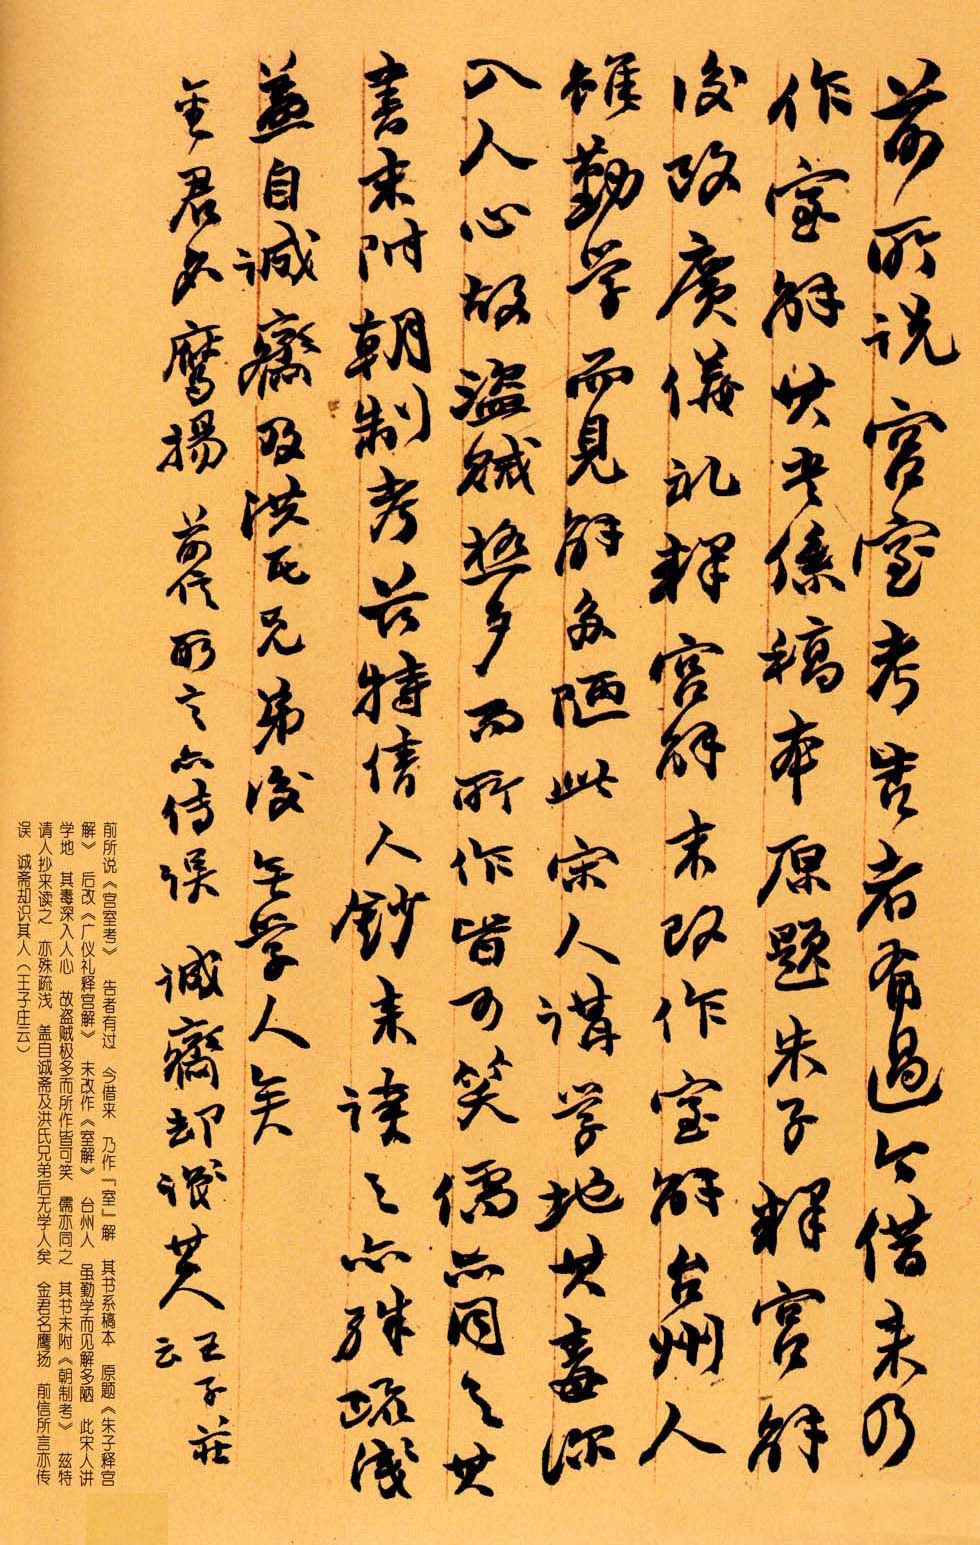 前所说宫室考告者有過今借来乃
作室解其书係稿本原题朱子释宫解
後改廣儀礼释宫解末改作室解台州人
雖勤学而見解多陋此宋人講学地其毒深
入人心故盜贼極多而所作皆可笑儒亦同之其
書末附朝制考茲特倩人鈔来读之亦殊疏淺
蓋自诚齋及洪氏兄弟後無学人矣
金君名鹰揚 前信所言亦传误 诚齋却識其人 王子莊
云
前所说《宫室考》 告者有过 今借来 乃作『室』解 其书系稿本 原题《朱子释宫
解》 后改《广仪礼释宫解》 末改作《室解》 台州人 虽勤学而见解多陋 此宋人讲
学地 其毒深入人心 故盗贼极多而所作皆可笑 儒亦同之 其书末附《朝制考》 兹特
请人抄来读之 亦殊疏浅 盖自诚斋及洪氏兄弟后无学人矣 金君名鹰扬 前信所言亦传
误 诚斋却识其人（王子庄云）